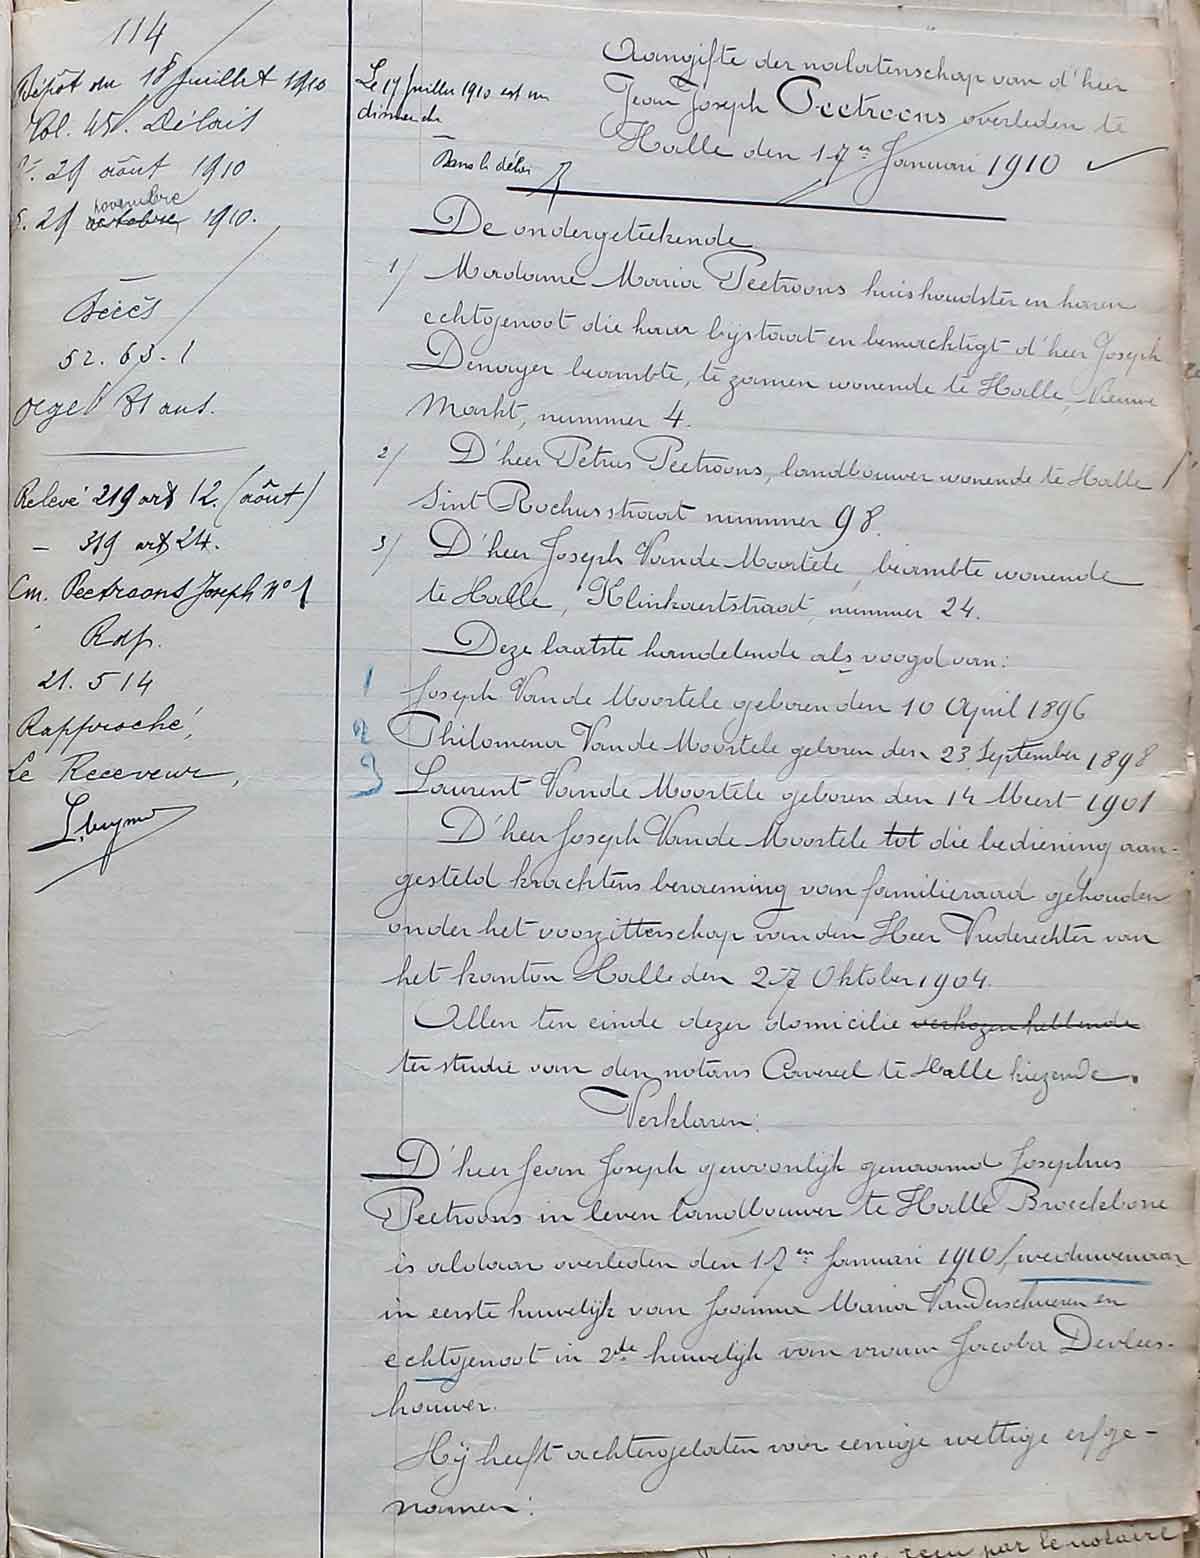 114
Dépôt du 18 Juillet 1910
Vol. 45. Délais
29 août 1910
novembre
29 octobre 1910.
Décès
52. 63. 1
agé 81 ans.
Relevé 219 art 12. (août)
— 319 art 24.
Cm. Peetroons Joseph No 1
Rdf.
21. 514
Rapproché,
Le Receveur,
Le 17 Juillet 1910 est un
dimanche
Dans le délai
Aangifte der nalatenschap van d'heer
Jean Joseph Peetroons overleden te
Halle den 17en Januari 1910
De ondergeteekende
1/ Madame Maria Peetroons huishoudster en haren
echtgenoot die haar bijstaat en bemachtigt d'heer Joseph
Denayer beambte, te zamen wonende te Halle, Nieuwe
Markt, nummer 4.
2/ D'heer Petrus Peetroons, landbouwer wonende te Halle
Sint Rochusstraat nummer 98.
3/ D'heer Joseph Van de Moortele, beambte wonende
te Halle, Klinkaertstraat, nummer 24.
Deze laatste handelende als voogd van:
1 Joseph Van de Moortele geboren den 10 April 1896
2 Philomena Van de Moortele geboren den 23 September 1898
3 Laurent Van de Moortele geboren den 14 Meert 1901
D'heer Joseph Van de Moortele tot die bediening aan-
gesteld krachtens benoeming van familieraad gehouden
onder het voorzitterschap van den Heer Vrederechter van
het kanton Halle den 27 Oktober 1904.
Allen ten einde dezer domicilie verkozen hebbende
ter studie van den notaris Caveel te Halle kiezende.
Verklaren:
D'heer Jean Joseph gewoonlijk genaamd Josephus
Peetroons in leven landbouwer te Halle Broeckborre
is aldaar overleden den 17en Januari 1910, weduwenaar
in eerste huwelijk van Joanna Maria Vanderschueren en
echtgenoot in 2de huwelijk van vrouw Jacoba Devlees-
houwer.
Hij heeft achtergelaten voor eenige wettige erfge-
namen:
reçu par le notaire